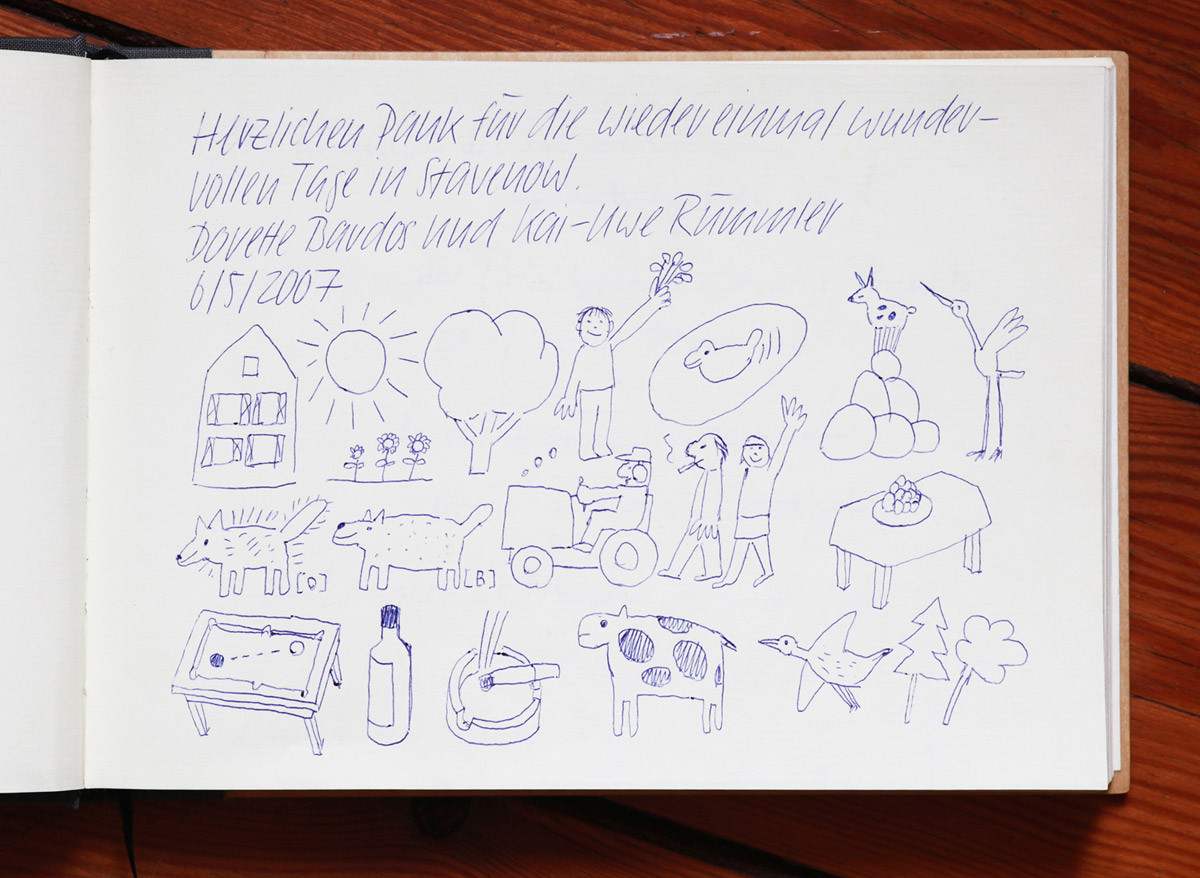 Herzlichen Dank für die wieder einmal wunder-
vollen Tage in Stavenow.
Dorette Bardos und Kai-Uwe Rümmler
6/5/2007
[Q] [B]